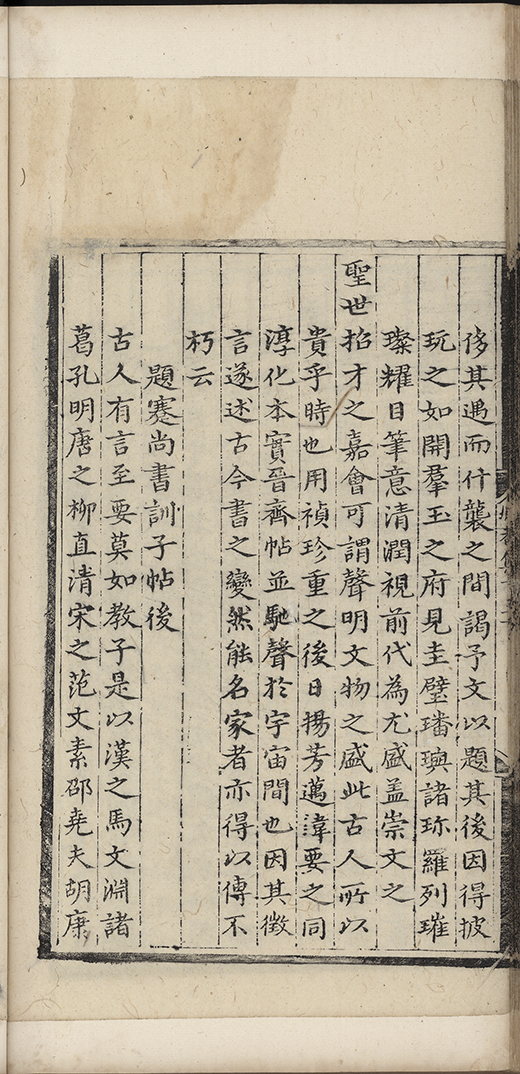 侈其遇而什襲之間謁予文以題其後因得披
玩之如開羣玉之府見圭璧璠璵諸珎羅列璀
璨耀日筆意清潤視前代為尤盛盖崇文之
聖世招才之嘉會可謂聲明文物之盛此古人所以
貴乎時也用禎珍重之後日揚芳邁諱要之同
淳化本實晉齊帖並馳聲於宇宙間也因其徵
言遂述古今書之變然能名家者亦得以傳不
朽云
題蹇尚書訓子帖後
古人有言至要莫如教子是以漢之馬文淵諸
葛孔明唐之柳直清宋之范文素邵堯夫胡康